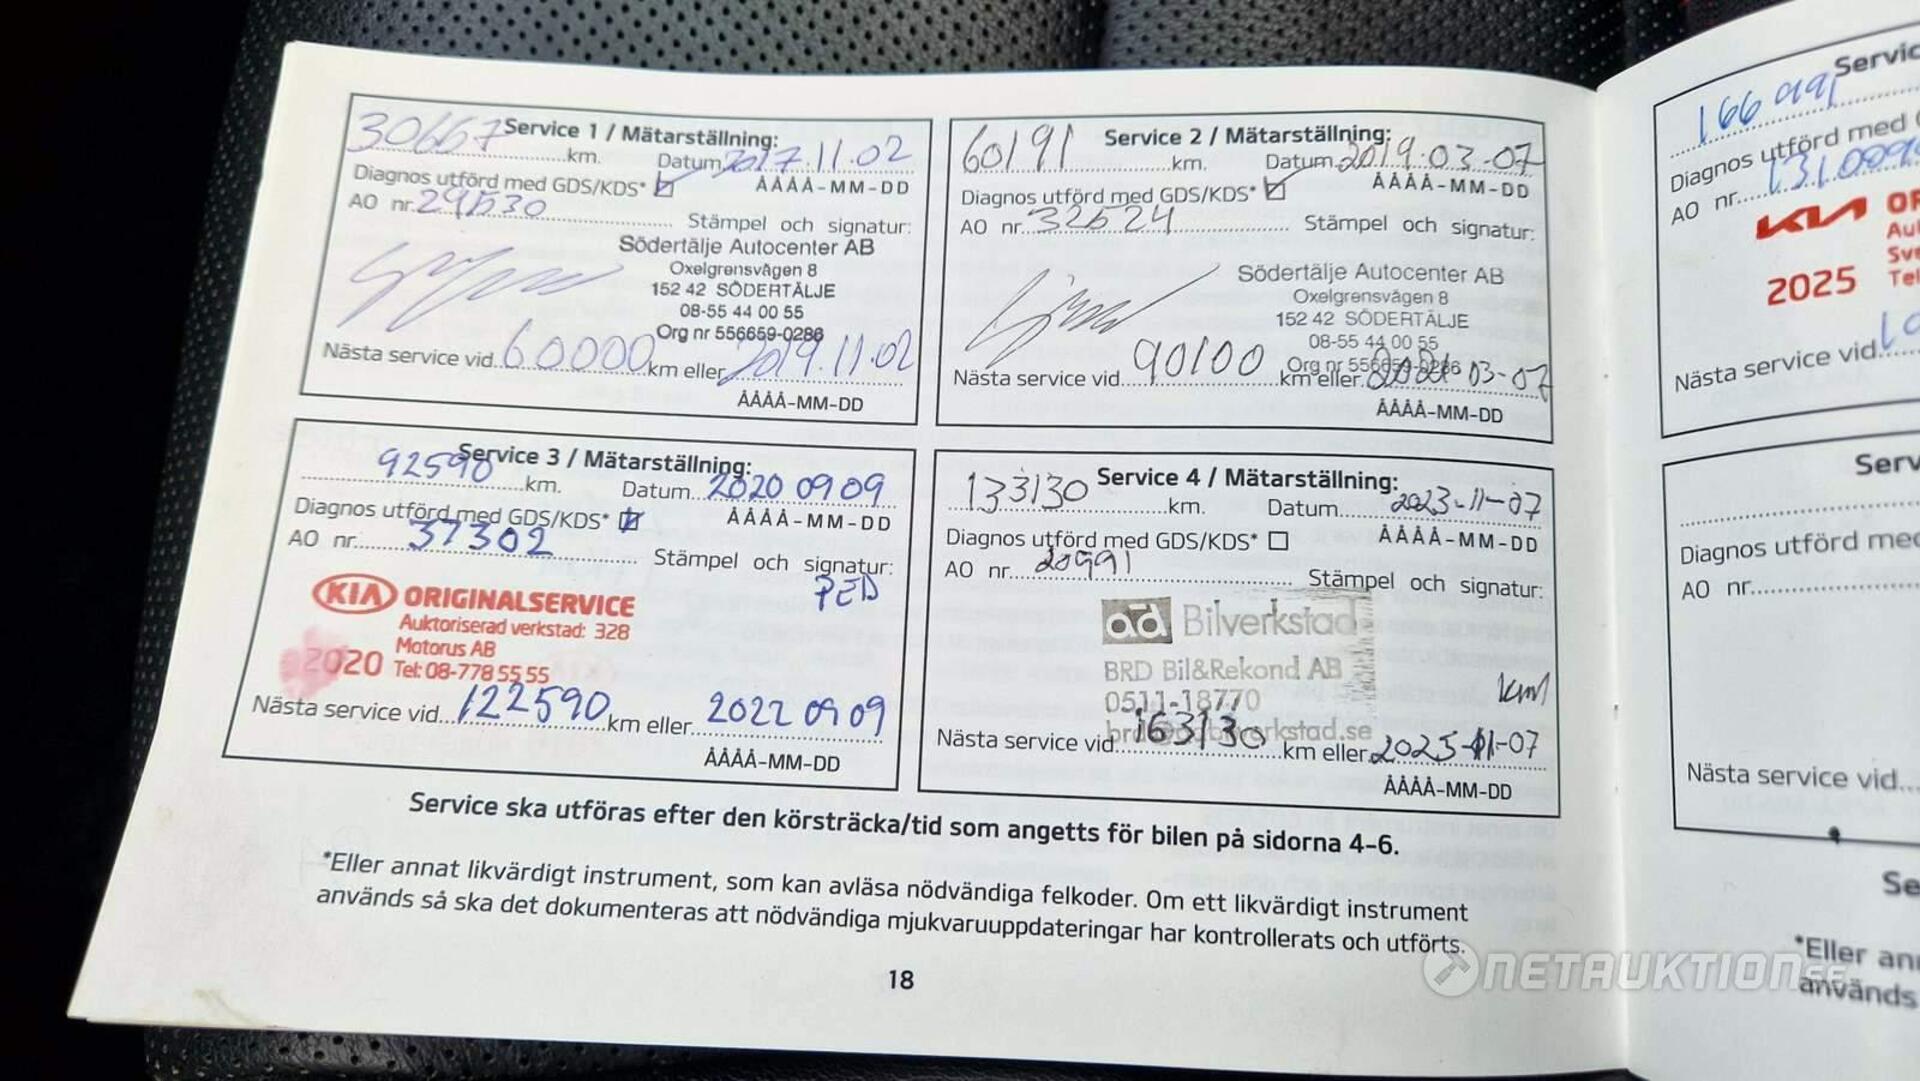 30667 Service 1 / Mätarställning:
km. Datum 2017.11.02
Diagnos utförd med GDS/KDS* ÅÅÅÅ-MM-DD
AO nr. Stämpel och signatur:
Södertälje Autocenter AB
Oxelgrensvägen 8
152 42 SÖDERTÄLJE
08-55 44 00 55
Org nr 556659-0286
Nästa service vid 60000 km eller 2019.11.02
ÅÅÅÅ-MM-DD
60191 Service 2 / Mätarställning:
km. Datum 2019.03-07
Diagnos utförd med GDS/KDS* ÅÅÅÅ-MM-DD
AO nr. 32524 Stämpel och signatur:
Södertälje Autocenter AB
Oxelgrensvägen 8
152 42 SÖDERTÄLJE
08-55 44 00 55
Org nr 556659-0286
Nästa service vid 90100 km eller 2021-03-07
ÅÅÅÅ-MM-DD
92590 Service 3 / Mätarställning:
km. Datum 2020 09 09
Diagnos utförd med GDS/KDS* ÅÅÅÅ-MM-DD
AO nr. 37302 Stämpel och signatur:
PED
KIA ORIGINALSERVICE
Auktoriserad verkstad: 328
Motorus AB
2020 Tel: 08-778 55 55
Nästa service vid 122590 km eller 2022 09 09
ÅÅÅÅ-MM-DD
133130 Service 4 / Mätarställning:
km. Datum 2023-11-07
Diagnos utförd med GDS/KDS* ÅÅÅÅ-MM-DD
AO nr. 20991 Stämpel och signatur:
ad Bilverkstad
BRD Bil&Rekond AB
0511-18770
Nästa service vid 163130 km eller 2025-11-07
ÅÅÅÅ-MM-DD
Service ska utföras efter den körsträcka/tid som angetts för bilen på sidorna 4-6.
*Eller annat likvärdigt instrument, som kan avläsa nödvändiga felkoder. Om ett likvärdigt instrument
används så ska det dokumenteras att nödvändiga mjukvaruuppdateringar har kontrollerats och utförts.
18
Diagnos utförd med
AO nr.
KIA
2025
Nästa service vid
Diagnos utförd med
AO nr.
Nästa service vid
*Eller
används
NETAUKTION.SE